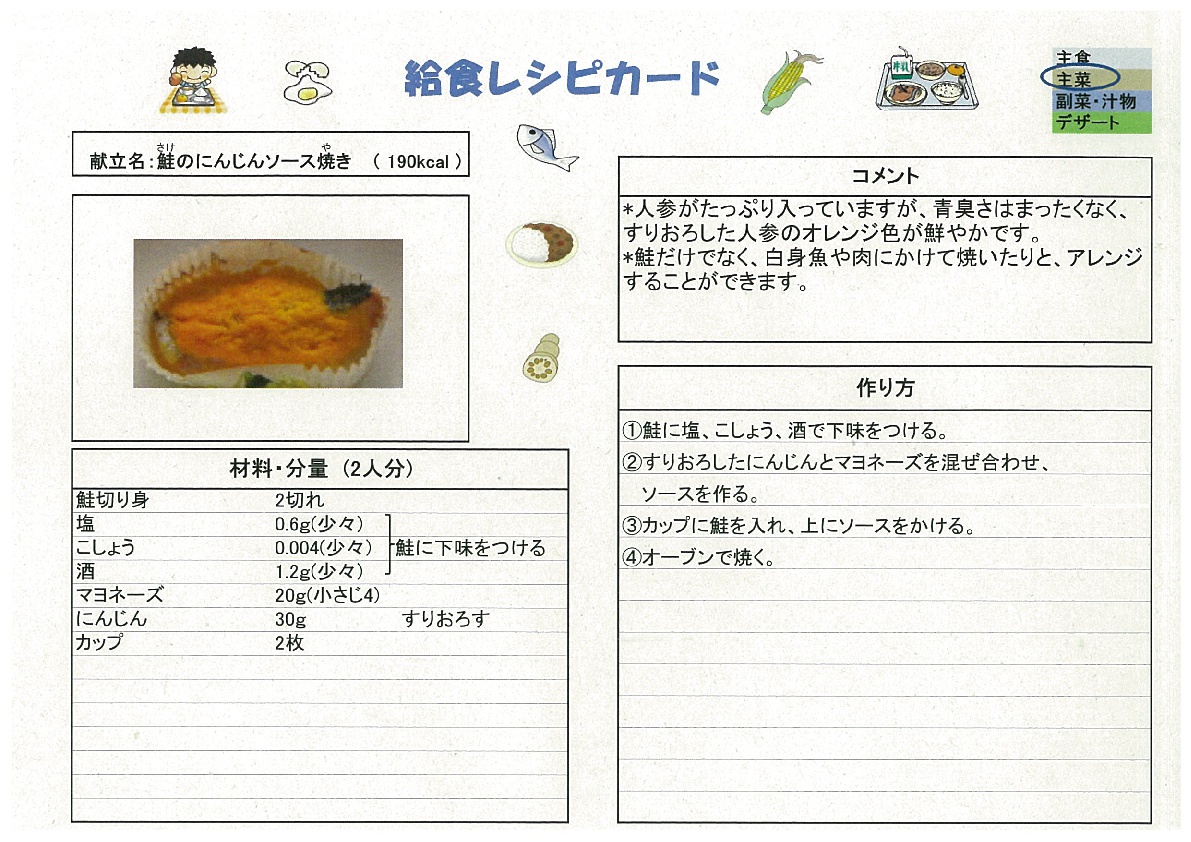 給食レシピカード
主食
主菜
副菜・汁物
デザート
献立名：鮭のにんじんソース焼き （ 190kcal ）
さけ
や
コメント
*人参がたっぷり入っていますが、青臭さはまったくなく、
すりおろした人参のオレンジ色が鮮やかです。
*鮭だけでなく、白身魚や肉にかけて焼いたりと、アレンジ
することができます。
材料・分量（2人分）
鮭切り身 2切れ
塩 0.6g(少々)
こしょう 0.004(少々) 鮭に下味をつける
酒 1.2g(少々)
マヨネーズ 20g(小さじ4)
にんじん 30g すりおろす
カップ 2枚
作り方
①鮭に塩、こしょう、酒で下味をつける。
②すりおろしたにんじんとマヨネーズを混ぜ合わせ、
ソースを作る。
③カップに鮭を入れ、上にソースをかける。
④オーブンで焼く。
牛乳